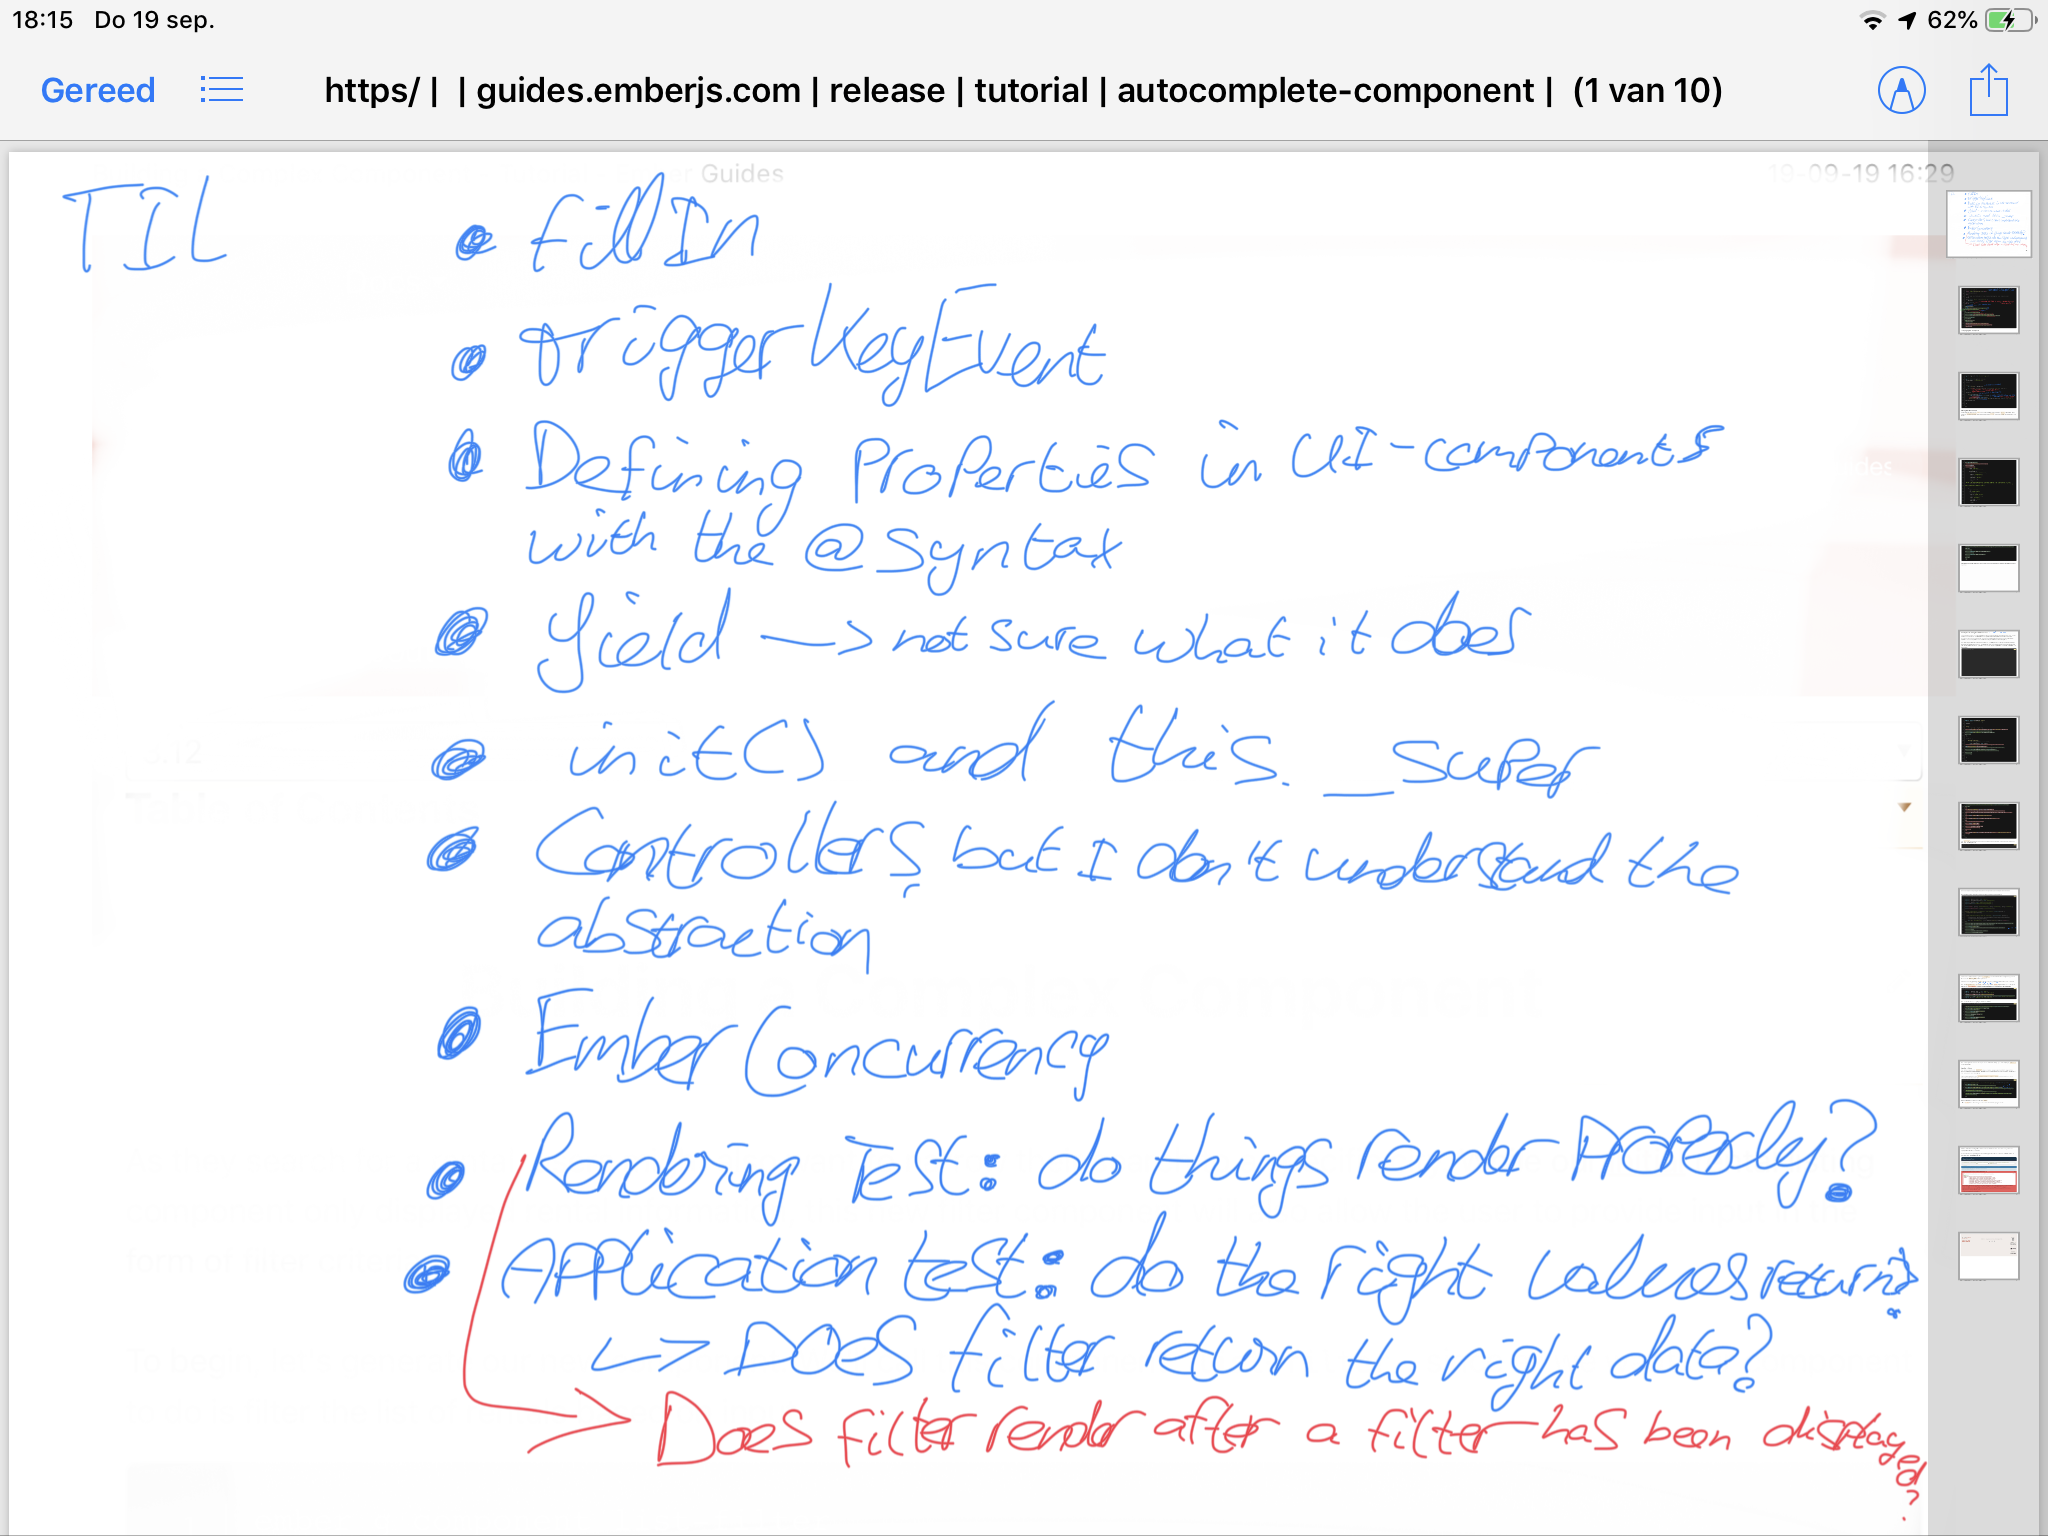 18:15 Do 19 sep. 62%
Gereed https/ | | guides.emberjs.com | release | tutorial | autocomplete-component | (1 van 10)
Guides 19-09-19 16:29
TIL
• fillIn
• triggerKeyEvent
• Defining Properties in UI-components
with the @ syntax
• Yield -> not sure what it does
• init() and this._super
• Controllers, but I don't understand the
abstraction
• Ember Concurrency
• Rendering Test: do things render properly?
• Application test: do the right values return?
↳> Does filter return the right data?
-> Does filter render after a filter has been displayed?